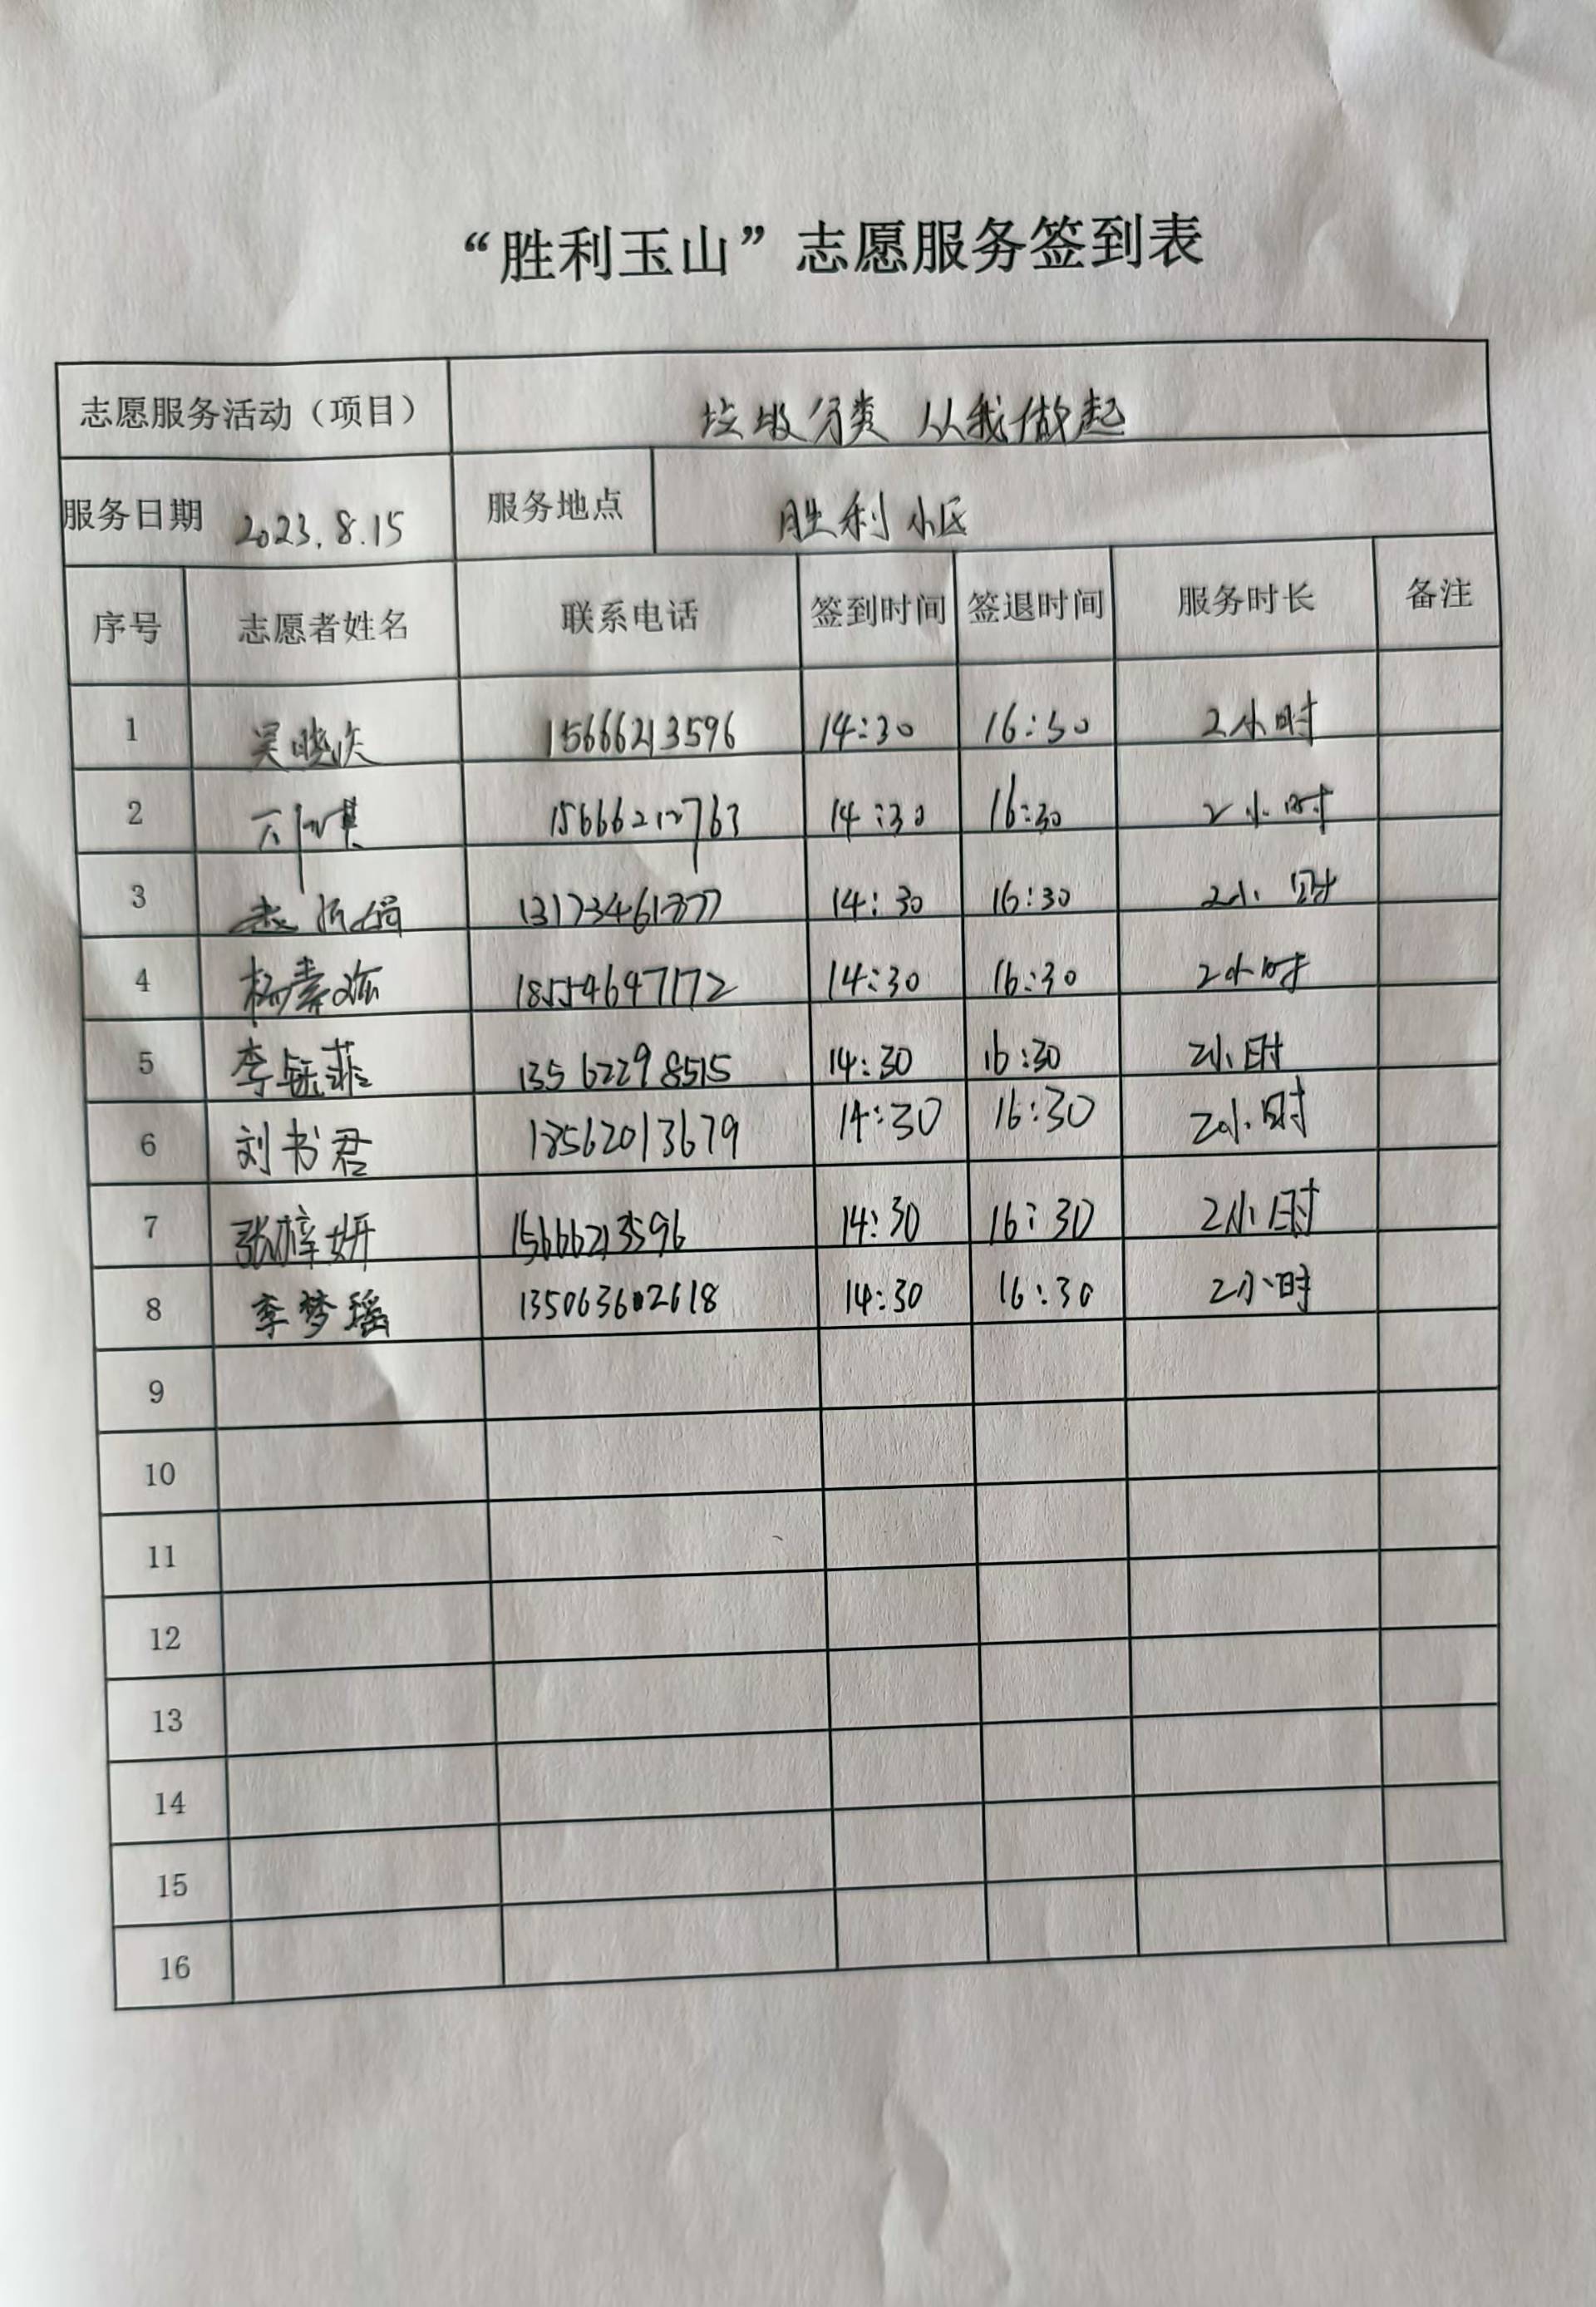 “胜利玉山”志愿服务签到表
志愿服务活动（项目） 垃圾分类 从我做起
服务日期 2023.8.15 服务地点 胜利小区
序号 志愿者姓名 联系电话 签到时间 签退时间 服务时长 备注
1 吴晓 15666213596 14:30 16:30 2小时
2 15666212763 14:30 16:30 2小时
3 14:30 16:30 2小时
4 杨素 18554647172 14:30 16:30 2小时
5 李钰菲 13562298515 14:30 16:30 2小时
6 刘书君 13562013679 14:30 16:30 2小时
7 张梓妍 15666213596 14:30 16:30 2小时
8 李梦瑶 135063602618 14:30 16:30 2小时
9
10
11
12
13
14
15
16